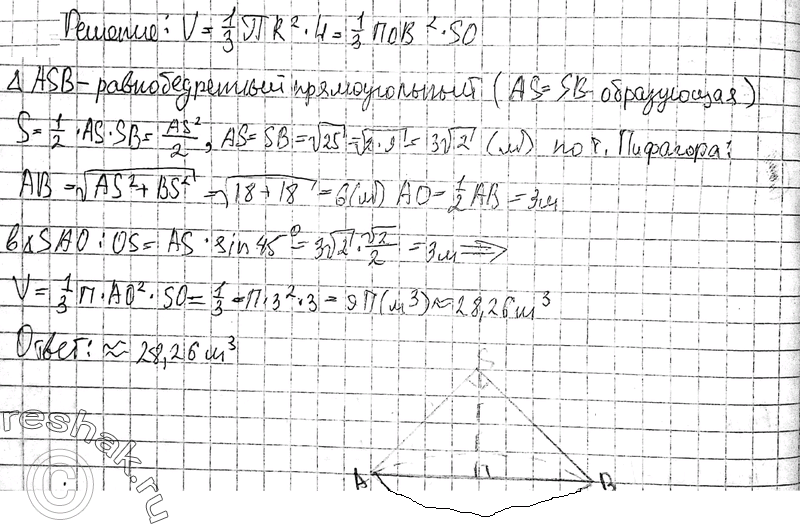 Решение: V = 1/3 πR² · H = 1/3 ПОВ² · SO
Δ ASB – равнобедренный прямоугольный (AS = SB образующая)
S = 1/2 · AS · SB = AS²/2, AS = SB = √2S = √2·9 = 3√2 (м) по т. Пифагора:
AB = √AS² + BS² = √18 + 18 = 6 (м) AO = 1/2 AB = 3м
в Δ SAO: OS = AS · sin 45° = 3√2 · √2/2 = 3м ⇒
V = 1/3 П · AO² · SO = 1/3 = П · 3² · 3 = 9П (м³) ≈ 28,26 м³
Ответ: ≈ 28,26 м³
S
A B
reshak.ru
©